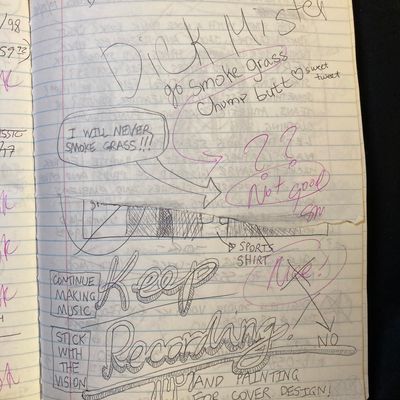 /98
DICK MISTER
go smoke grass
Chump butt sweet
tweet
I WILL NEVER
SMOKE GRASS!!!
??
Not good
SPORTS
SHIRT
CONTINUE
MAKING
MUSIC
Keep
Nice!
STICK
WITH
THE
VISION
Recording.
NO
AND PAINTING
FOR COVER DESIGN!